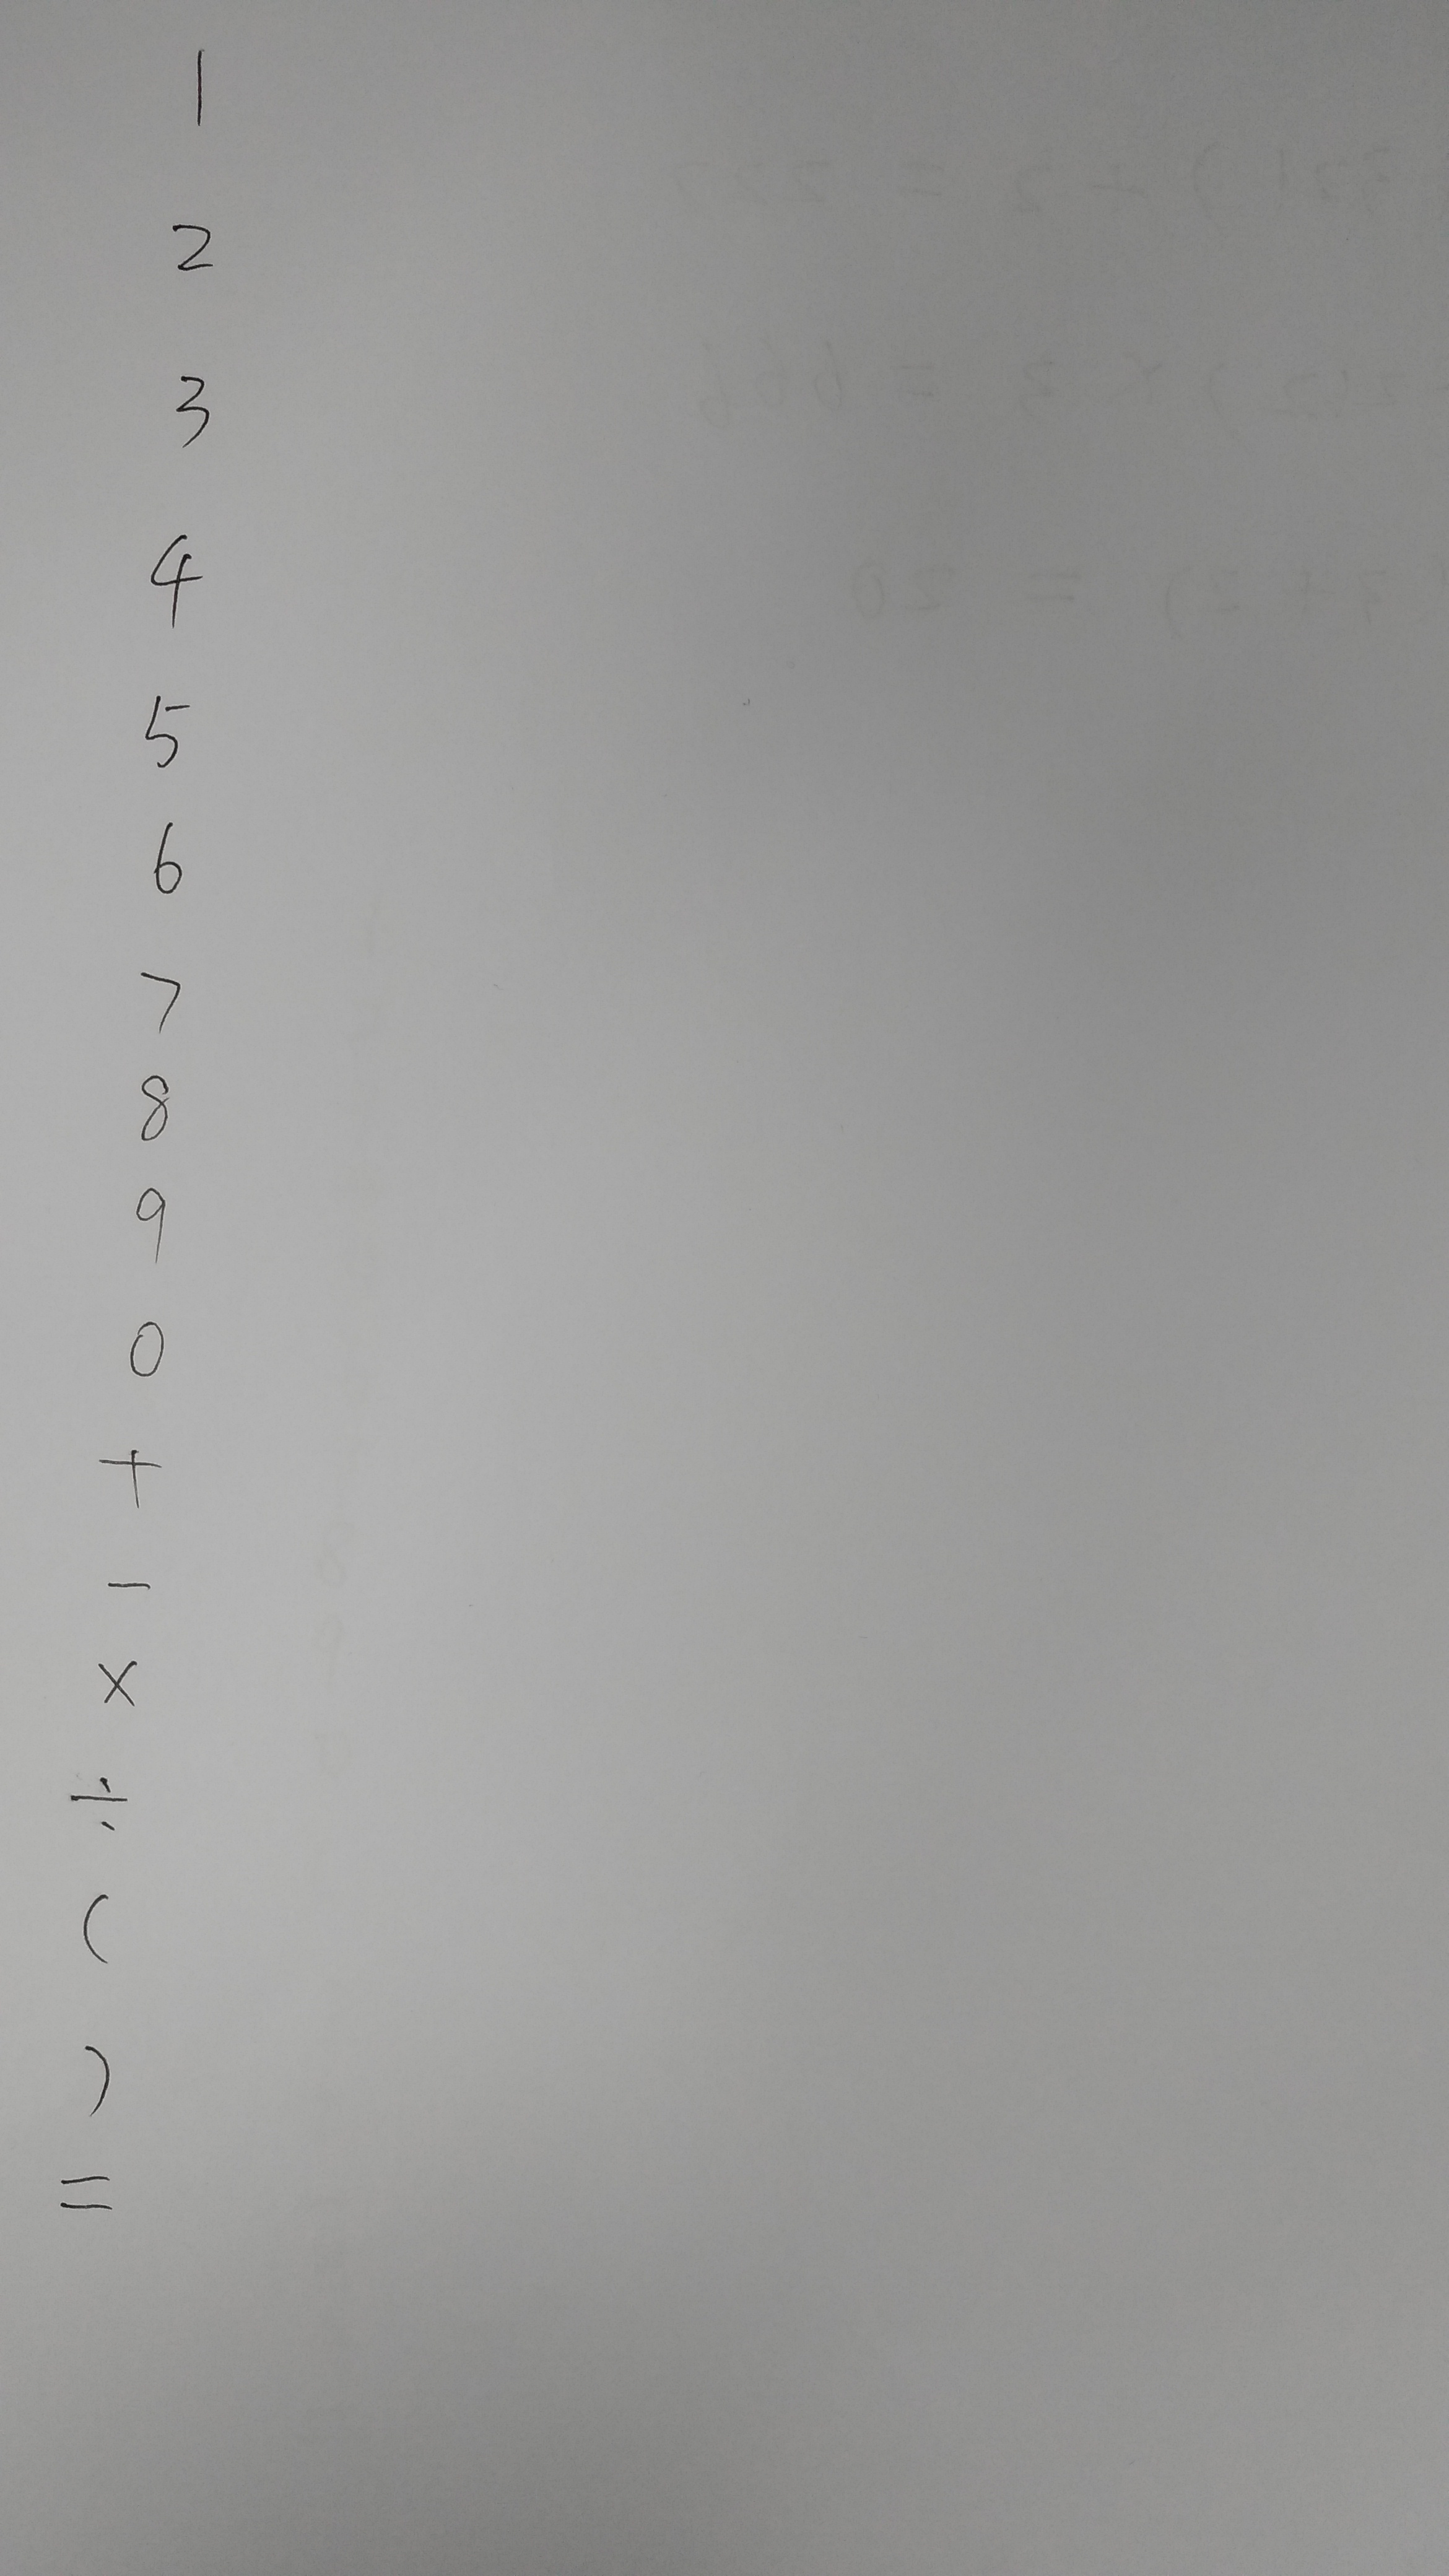 1
2
3
4
5
6
7
8
9
0
+
-
×
÷
(
)
=